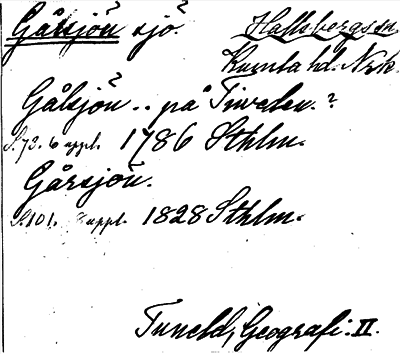 Gålsjön? sjö. Hallsbergs sn
Kumla hd. Nrk.
Gålsjön? .. på Tiveden.?
S. 73. 6 uppl. 1786 Sthlm.
Gårsjön.
S. 101. uppl. 1828 Sthlm.
Tuneld, Geografi. II.